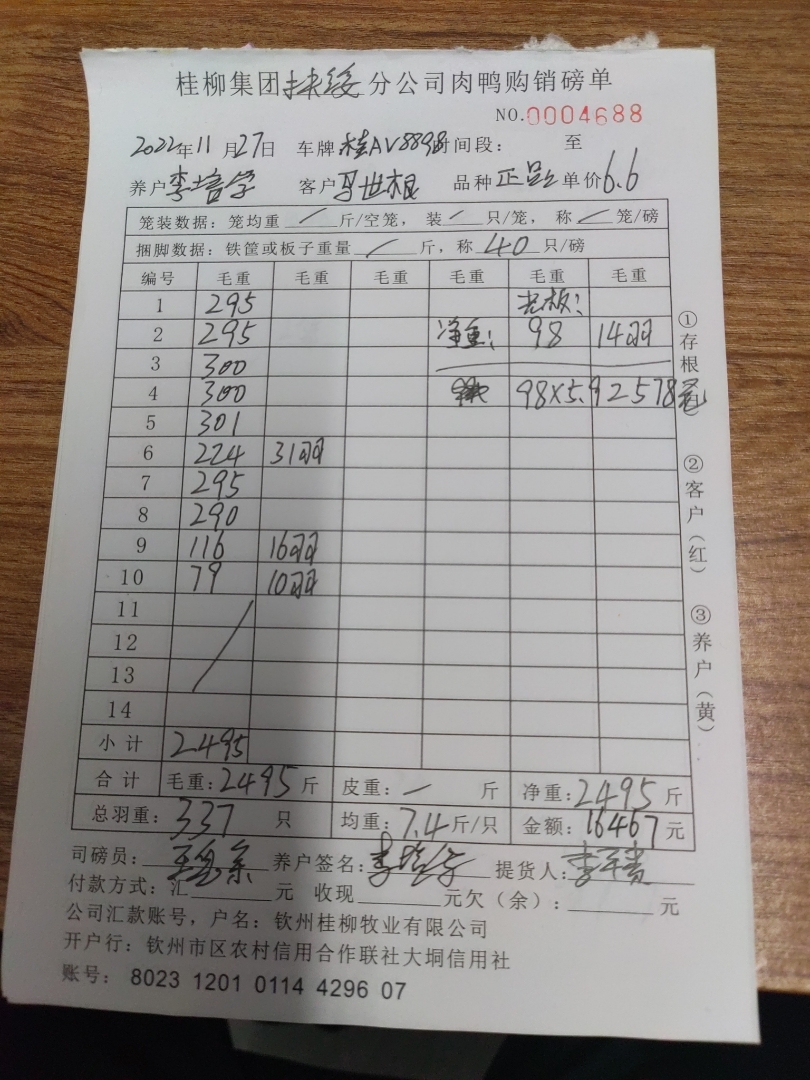 桂柳集团扶绥分公司肉鸭购销磅单
NO.0004688
2022年11月27日 车牌桂AV8898时间段： 至
养户李培学 客户 品种正品 单价6.6
笼装数据：笼均重 / 斤/空笼，装 / 只/笼，称 / 笼/磅
捆脚数据：铁筐或板子重量 / 斤，称 40 只/磅
编号 毛重 毛重 毛重 毛重 毛重 毛重
1 295 老板：
2 295 净重： 98 14羽
3 300
4 300 98×5.9 2 578元
5 301
6 224 31羽
7 295
8 290
9 116 16羽
10 79 10羽
11
12
13
14
小计 2495
合计 毛重：2495斤 皮重：— 斤 净重：2495斤
总羽重：337 只 均重：7.4斤/只 金额：16467元
司磅员： 养户签名：李培学 提货人：
付款方式：汇 元 收现 元欠（余）： 元
公司汇款账号，户名：钦州桂柳牧业有限公司
开户行：钦州市区农村信用合作联社大垌信用社
账号： 8023 1201 0114 4296 07
①存根
②客户（红）
③养户（黄）